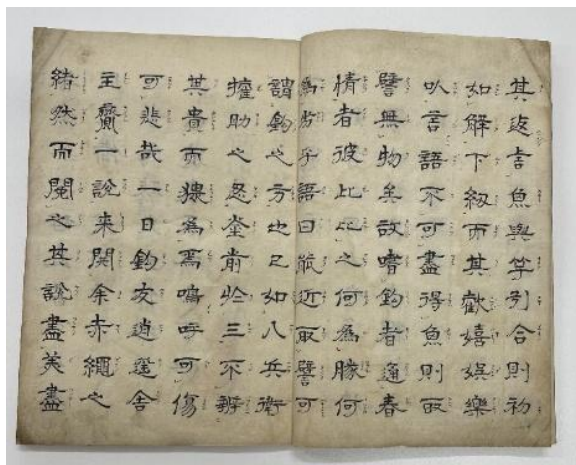 其返言魚與竿引合則初
如解下級而其歡嬉娯樂
以言語不可盡得魚則取
譬無物矣故嗜釣者通春
情者彼比比之何為勝何
為劣乎語曰能近取譬可
謂釣之方也已如八兵衛
擁助之忍登前於三不辨
其貴而猥為焉嗚呼可傷
可悲哉一日釣友逍遥舍
主賷一說来閱余赤繩之
緒然而閱之其說盡美盡